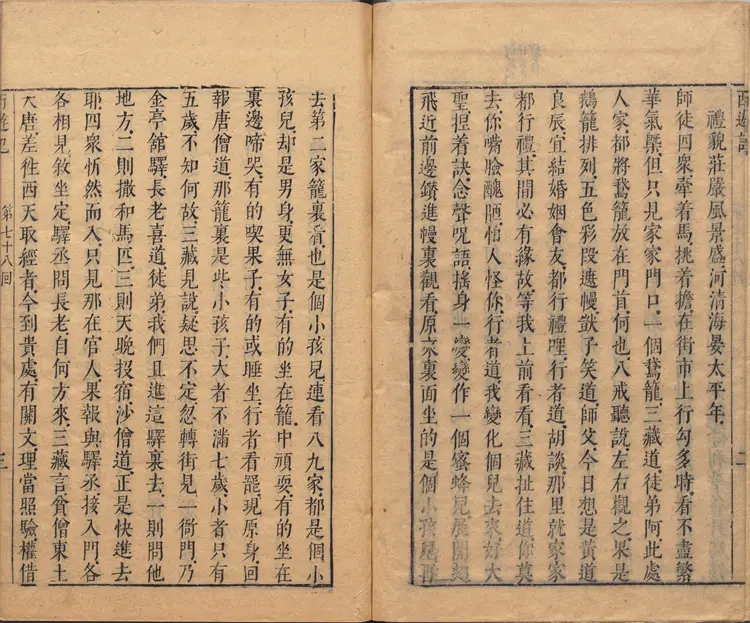 西遊記
二
禮貌莊嚴風景盛河清海晏太平年
師徒四衆牽着馬挑着擔在街市上行勾多時看不盡繁
華氣槩但只見家家門口一個鵞籠三藏道徒弟阿此處
人家都將鵞籠放在門首何也八戒聽說左右觀之果是
鵞籠排列五色彩段遮幔獃子笑道師父今日想是黃道
良辰宜結婚姻會友都行禮哩行者道胡談那里就家家
都行禮其間必有緣故等我上前看看三藏扯住道你莫
去你嘴臉醜陋怕人怪你行者道我變化個兒去來好大
聖捏着訣念聲呪語搖身一變變作一個蜜蜂兒展開翅
飛近前邊鑽進幔裏觀看原來裏面坐的是個小孩兒再
去第二家籠裏看也是個小孩兒連看八九家都是個小
孩兒却是男身更無女子有的坐在籠中頑耍有的坐在
裏邊啼哭有的喫果子有的或睡坐行者看罷現原身回
報唐僧道那籠裏是些小孩子大者不滿七歲小者只有
五歲不知何故三藏見說疑思不定忽轉街見一衙門乃
金亭館驛長老喜道徒弟我們且進這驛裏去一則問他
地方二則撒和馬匹三則天晚投宿沙僧道正是快進去
耶四衆忻然而入只見那在官人果報與驛丞接入門各
各相見敘坐定驛丞問長老自何方來三藏言貧僧東土
大唐差往西天取經者今到貴處有關文理當照驗權借
西遊記
第七十八回
三